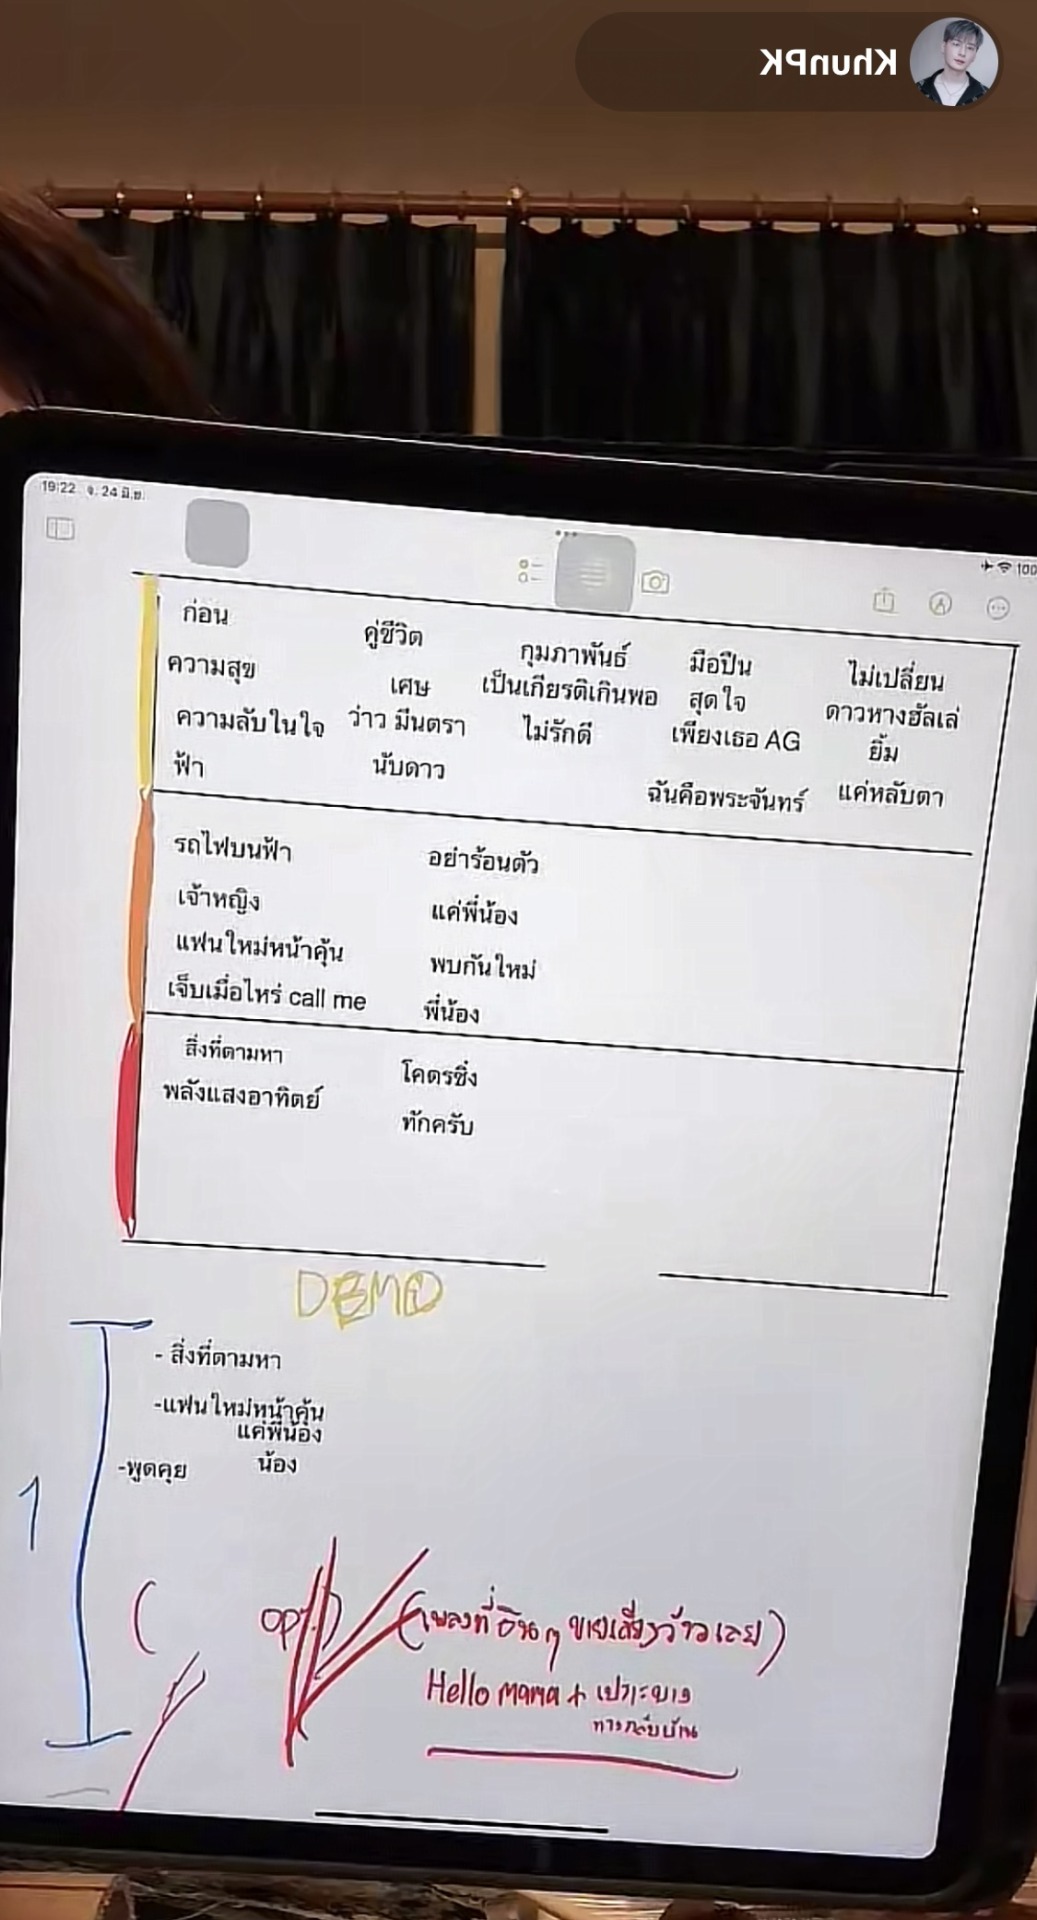 KhunPK
19:22 จ. 24 มิ.ย.
100
ก่อน คู่ชีวิต กุมภาพันธ์ มือปืน ไม่เปลี่ยน
ความสุข เศษ เป็นเกียรติเกินพอ สุดใจ ดาวหางฮัลเล่
ความลับในใจ ว่าว มีนตรา ไม่รักดี เพียงเธอ AG ยิ้ม
ฟ้า นับดาว ฉันคือพระจันทร์ แค่หลับตา
รถไฟบนฟ้า อย่าร้อนตัว
เจ้าหญิง แค่พี่น้อง
แฟนใหม่หน้าคุ้น พบกันใหม่
เจ็บเมื่อไหร่ call me พี่น้อง
สิ่งที่ตามหา โคตรซิ่ง
พลังแสงอาทิตย์ ทักครับ
DEMO
- สิ่งที่ตามหา
-แฟนใหม่หน้าคุ้น
แค่พี่น้อง
-พูดคุย น้อง
1
(เพลงที่ ๆ ขายเสียงว้าวเลย)
Hello mama + เปราะบาง
ทางกลับบ้าน